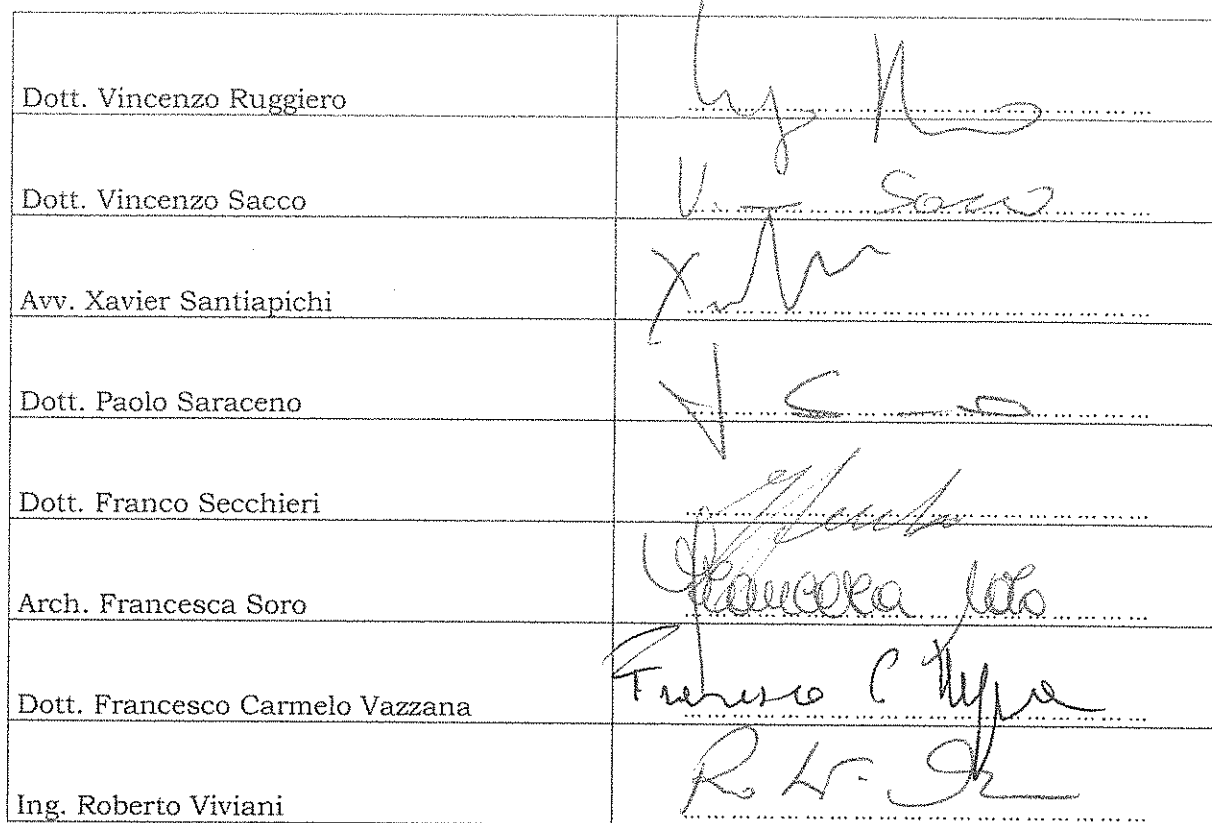 Dott. Vincenzo Ruggiero
Dott. Vincenzo Sacco
V. Sacco
Avv. Xavier Santiapichi
Dott. Paolo Saraceno
Dott. Franco Secchieri
Arch. Francesca Soro
Francesca Soro
Dott. Francesco Carmelo Vazzana
Francesco C
Ing. Roberto Viviani